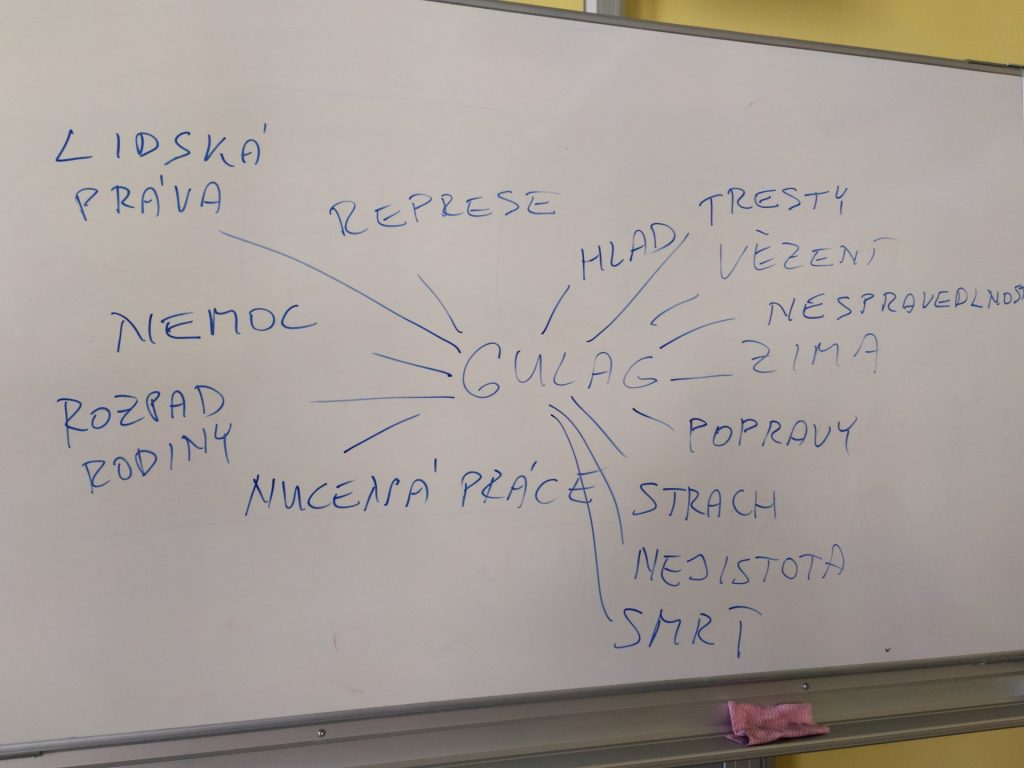 LIDSKÁ
PRÁVA
REPRESE
HLAD
TRESTY
VĚZENÍ
NESPRAVEDLNOST
NEMOC
GULAG
ZIMA
ROZPAD
RODINY
POPRAVY
NUCENÁ PRÁCE
STRACH
NEJISTOTA
SMRT